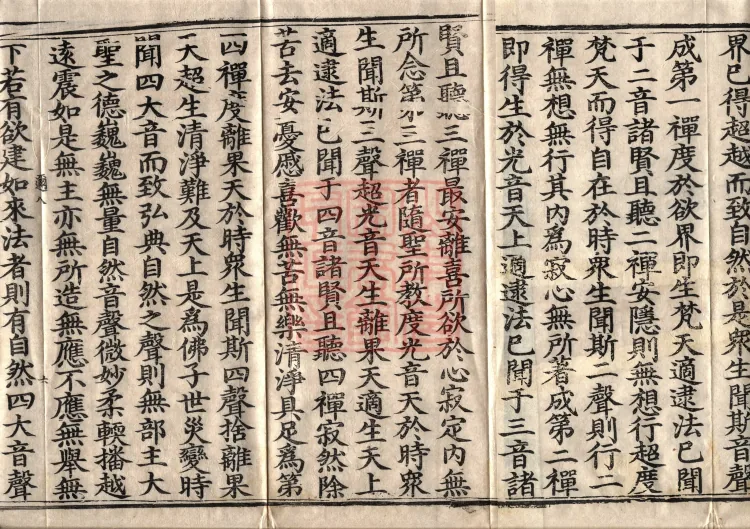 界已得超越而致自然於是衆生聞斯音聲
成第一禪度於欲界即生梵天適逮法已聞
于二音諸賢且聽二禪安隱則無想行超度
梵天而得自在於時衆生聞斯二聲則行二
禪無想無行其內爲寂心無所著成第二禪
即得生於光音天上適逮法已聞于三音諸
賢且聽三禪最安離喜所欲於心寂定內無
所念第三禪者隨聖所教度光音天於時衆
生聞斯三聲超光音天生離果天適生天上
適逮法已聞于四音諸賢且聽四禪寂然除
苦去安憂慼喜歡無苦無樂清淨具足爲第
四禪度離果天於時衆生聞斯四聲捨離果
天超生清淨難及天上是爲佛子世災變時
聞四大音而致弘典自然之聲則無部主大
聖之德巍巍無量自然音聲微妙柔輭播越
遠震如是無主亦無所造無應不應無舉無
下若有欲建如來法者則有自然四大音聲